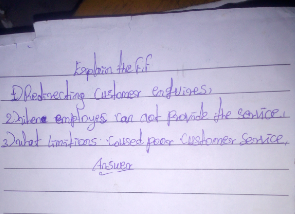 Explain the ff
1) Redirecting Customer enquires,
2) employes can not provide the service,
3) what limitions caused poor customer service,
Answer